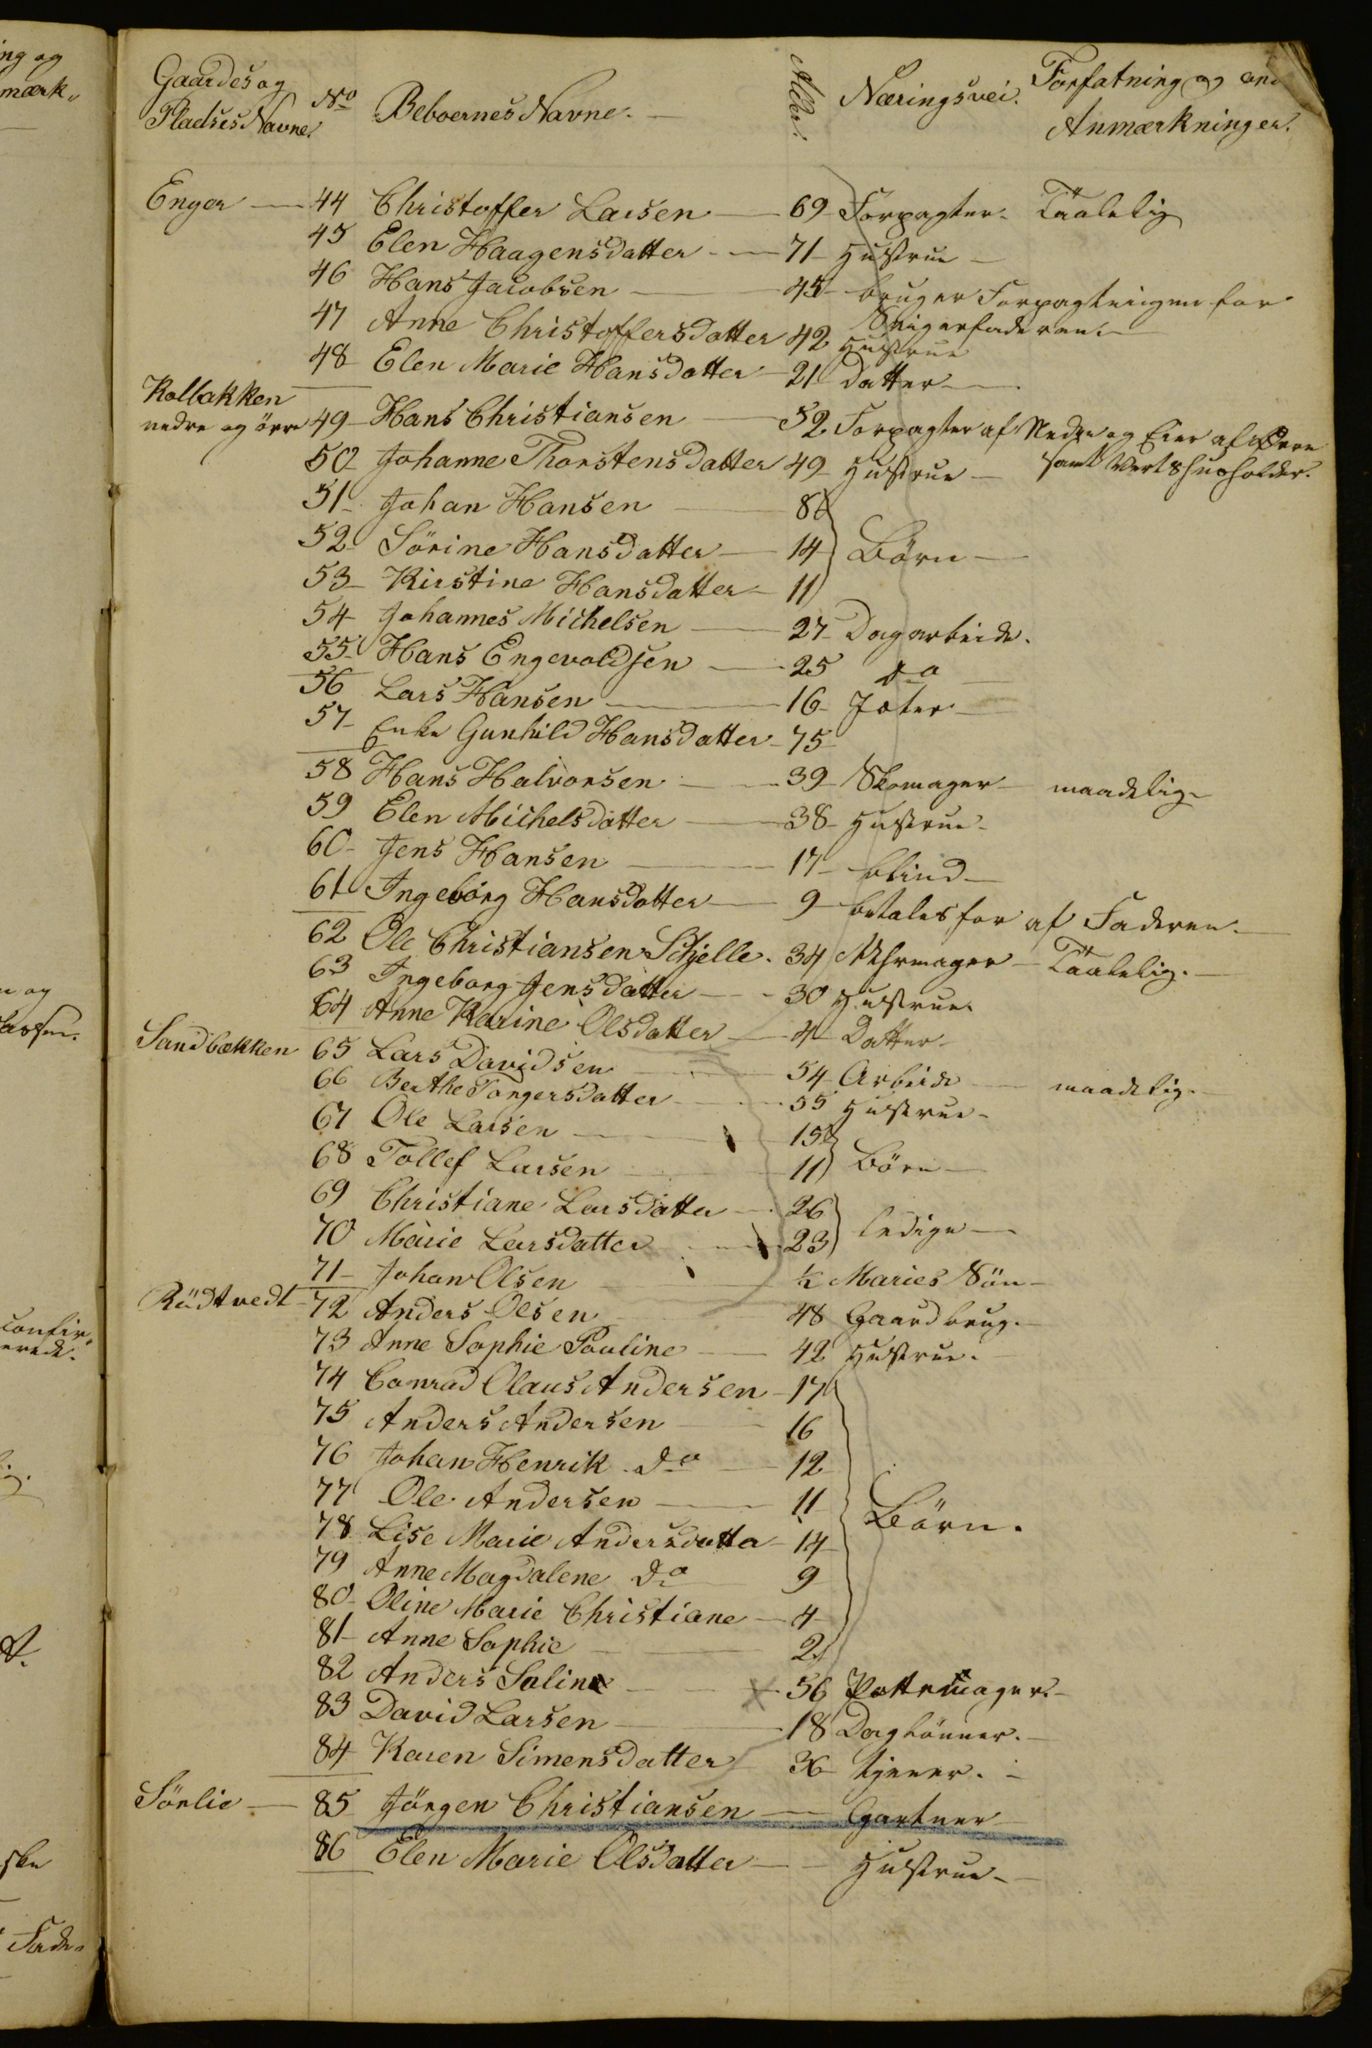 Gaardes og Pladses Navne. No Beboernes Navne. Alder. Næringsvei. Forfatning og Anmærkninger.
Enger 44 Christoffer Larsen 69 Forpagter. Taalelig
45 Elen Haagensdatter 71 Hustrue
46 Hans Jacobsen 45 bruger Forpagtningen for
Svigerfaderen.
47 Anne Christoffersdatter 42 Hustrue
48 Elen Marie Hansdatter 21 Datter
Kolbakken
nedre og övre 49 Hans Christiansen 52. Forpagter af Nedre og Eier af Övre
samt Vertshusholder.
50 Johanne Thorstensdatter 49 Hustrue
51 Johan Hansen 8
52 Sörine Hansdatter 14 Börn
53 Kirstine Hansdatter 11
54 Johannes Michelsen 27 Dagarbeide.
55 Hans Engevoldsen 25 do
56 Lars Hansen 16 Jæter
57 Enke Gunhild Hansdatter 75
58 Hans Halvorsen 39 Skomager maadelig
59 Elen Michelsdatter 38 Hustrue
60 Jens Hansen 17 blind
61 Ingeborg Hansdatter 9 betales for af Faderen.
62 Ole Christiansen Schjelle. 34 Uhrmager Taalelig.
63 Ingeborg Jensdatter 30 Hustrue.
64 Anne Karine Olsdatter 4 Datter
Sandbækken 65 Lars Davidsen 54 Arbeide maadelig.
66 Berthe Torgersdatter 55 Hustrue
67 Ole Larsen 15
68 Tollef Larsen 11 Börn
69 Christiane Larsdatter 26
70 Marie Larsdatter 23 ledige
71 Johan Olsen ½ Maries Sön
Rödtvedt 72 Anders Olsen 48 Gaardbrug.
73 Anne Sophie Pouline 42 Hustrue.
74 Conrad Olaus Andersen 17
75 Anders Andersen 16
76 Johan Henrik do 12
77 Ole Andersen 11 Börn.
78 Lise Marie Andersdatter 14
79 Anne Magdalene do 9
80 Oline Marie Christiane 4
81 Anne Sophie 2
82 Anders Saline 56 Pottemager.
83 David Larsen 18 Daglönner.
84 Karen Simensdatter 36 tjener.
Sörlie 85 Jörgen Christiansen Gartner
86 Elen Marie Olsdatter Hustrue